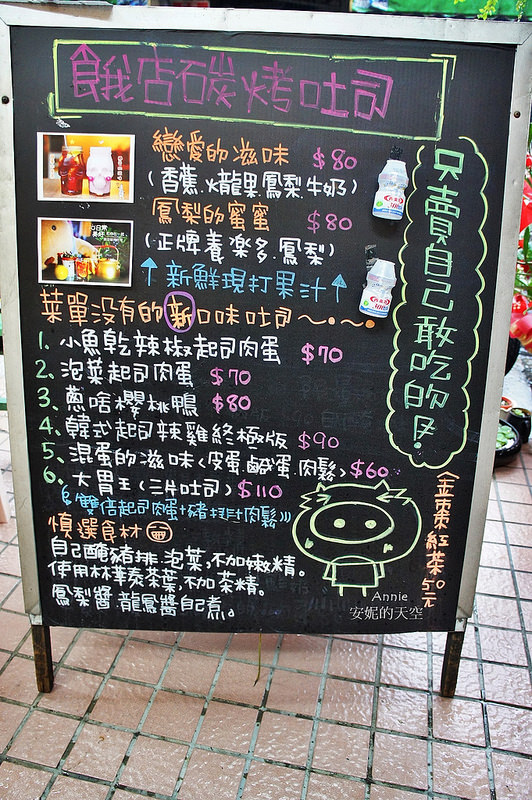 餓店碳烤吐司
戀愛的滋味 $80
(香蕉.火龍果.鳳梨.牛奶)
鳳梨的蜜蜜 $80
(正牌養樂多.鳳梨)
↑新鮮現打果汁↑
菜單沒有的新口味吐司~•~•
1. 小魚乾辣椒起司肉蛋 $70
2. 泡菜起司肉蛋 $70
3. 蔥啥櫻桃鴨 $80
4. 韓式起司辣雞終極版 $90
5. 混蛋的滋味<皮蛋.鹹蛋.肉鬆> $60
6. 大胃王(三片吐司) $110
((雙倍起司肉蛋+豬排+肉鬆))
慎選食材
自己醃豬排.泡菜,不加嫩精。
使用林華泰茶葉,不加茶精。
鳳梨醬.龍鳳醬自煮。
只賣自己敢吃的!
金棗紅茶50元
Annie
安妮的天空